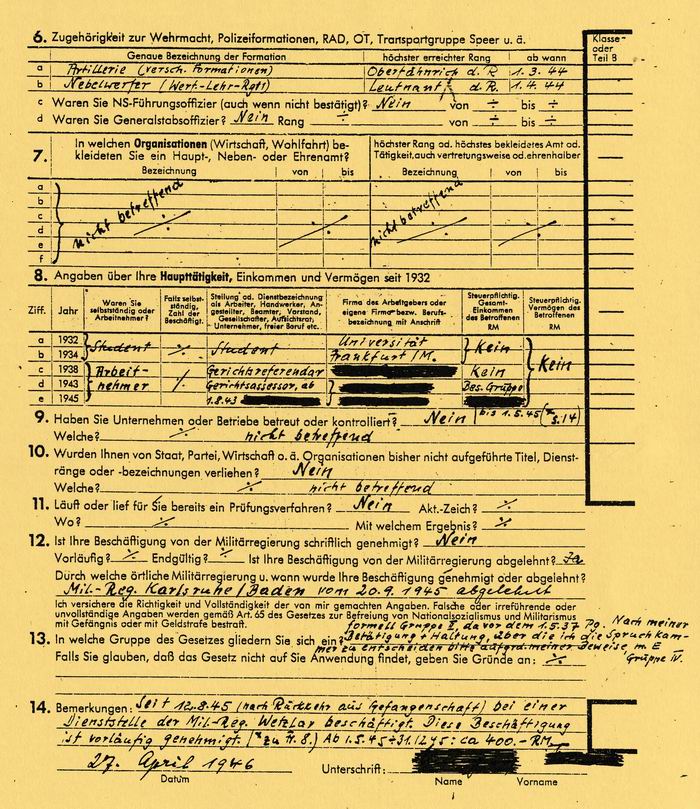 6. Zugehörigkeit zur Wehrmacht, Polizeiformationen, RAD, OT, Transportgruppe Speer u. ä.
Klasse- oder Teil B
Genaue Bezeichnung der Formation höchster erreichter Rang ab wann
a Artillerie (versch. Formationen) Oberfähnrich d. R. 1.3.44
b Nebelwerfer (Werf.-Lehr-Rgt1) Leutnant d. R. 1.4.44
c Waren Sie NS-Führungsoffizier (auch wenn nicht bestätigt)? Nein von ÷ bis ÷
d Waren Sie Generalstabsoffizier? Nein Rang ÷ von ÷ bis ÷
7. In welchen Organisationen (Wirtschaft, Wohlfahrt) be-
kleideten Sie ein Haupt-, Neben- oder Ehrenamt?
höchster Rang od. höchstes bekleidetes Amt od.
Tätigkeit, auch vertretungsweise od. ehrenhalber
Bezeichnung von bis Bezeichnung von bis
a
b
c
d
e
f
nicht betreffend ÷ ÷ nicht betreffend ÷ ÷
8. Angaben über Ihre Haupttätigkeit, Einkommen und Vermögen seit 1932
Ziff. Jahr
Waren Sie selbstständig oder Arbeitnehmer?
Falls selbst- ständig, Zahl der Beschäftigt.
Stellung od. Dienstbezeichnung als Arbeiter, Handwerker, An- gestellter, Beamter, Vorstand, Gesellschafter, Aufsichtsrat, Unternehmer, freier Beruf etc.
Firma des Arbeitgebers oder eigene Firma bezw. Berufs- bezeichnung mit Anschrift
Steuerpflichtig. Gesamt- Einkommen des Betroffenen RM
Steuerpflichtig. Vermögen des Betroffenen RM
a 1932
b 1934 Student ÷ Student Universität Frankfurt/M. Kein
c 1938 Arbeit- Gerichtsreferendar Kein Kein
d 1943 nehmer ÷ Gerichtsassessor, ab Bes. Gruppe
e 1945 1.8.43
9. Haben Sie Unternehmen oder Betriebe betreut oder kontrolliert? Nein bis 1.5.45 (* s. 14)
Welche? ÷ nicht betreffend
10. Wurden Ihnen von Staat, Partei, Wirtschaft o. ä. Organisationen bisher nicht aufgeführte Titel, Dienst-
ränge oder -bezeichnungen verliehen? Nein
Welche? ÷ nicht betreffend
11. Läuft oder lief für Sie bereits ein Prüfungsverfahren? Nein Akt.-Zeich? ÷
Wo? ÷ Mit welchem Ergebnis? ÷
12. Ist Ihre Beschäftigung von der Militärregierung schriftlich genehmigt? Nein
Vorläufig? ÷ Endgültig? ÷ Ist Ihre Beschäftigung von der Militärregierung abgelehnt? Ja
Durch welche örtliche Militärregierung u. wann wurde Ihre Beschäftigung genehmigt oder abgelehnt?
Mil.-Reg. Karlsruhe/Baden vom 20.9.1945 abgelehnt
Ich versichere die Richtigkeit und Vollständigkeit der von mir gemachten Angaben. Falsche oder irreführende oder
unvollständige Angaben werden gemäß Art. 65 des Gesetzes zur Befreiung von Nationalsozialismus und Militarismus
mit Gefängnis oder mit Geldstrafe bestraft.
formell Gruppe II, da vor dem 1.5.37 Pg. Nach meiner
13. In welche Gruppe des Gesetzes gliedern Sie sich ein? Betätigung + Haltung, über die ich die Spruchkam-
mer zu entscheiden bitte aufgrd. meiner Beweise, m. E
Falls Sie glauben, daß das Gesetz nicht auf Sie Anwendung findet, geben Sie Gründe an: ÷ Gruppe IV.
14. Bemerkungen: Seit 12.8.45 (nach Rückkehr aus Gefangenschaft) bei einer
Dienststelle der Mil-Reg. Wetzlar beschäftigt. Diese Beschäftigung
ist vorläufig genehmigt. (* zu Zi. 8.) Ab 1.5.45 ÷ 31.12.45: ca 400.- RM
27. April 1946 Unterschrift:
Datum Name Vorname